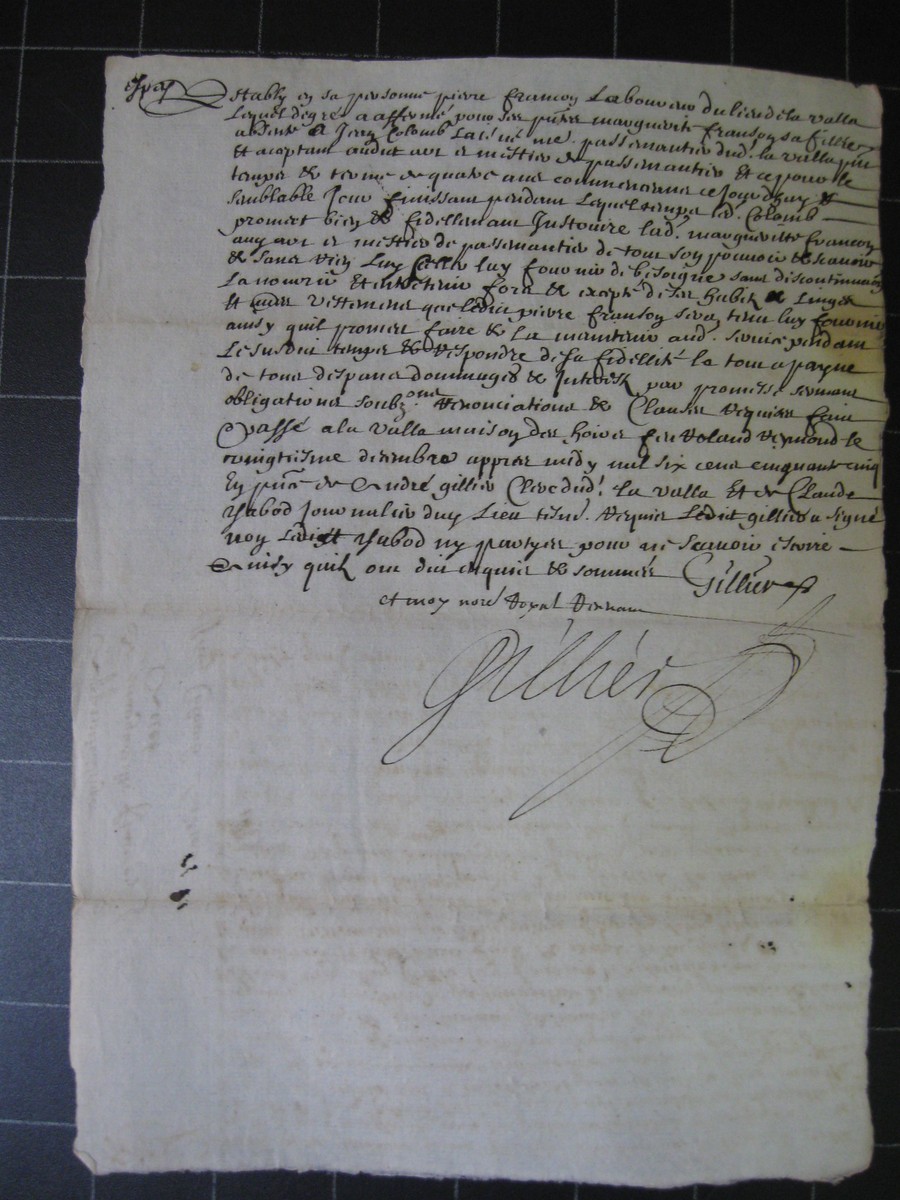 Estably en sa personne pierre françoy Laboureur du lieu de la valla
Lequel de gré a affermé pour ses peines marguerite fransoy sa fillie
absente a Jean Colomb passemantier dud. la valla pnt
et aceptant audit art et mistier de passemantier Et ce pour le
temps & terme de quatre ans commencenns ce Jourdhuy &
semblable Jour finissant pendant Lequel temps led. Colomb
promet bien & fidellemant Instruire lad. marguerite françoy
aud. art et mistier de passemantier de tout son pouvoir & scavoir
& sans rien luy Celler luy fournir de besoigne sans discontinuation
La nourir Et entretenir fors & excepté de ses habitz & Linges
Et autres vestemens que ledit pierre fransoy sera tenu luy fournir
ainsy quil promet faire & la maintenir aud. servic pendant
Le susdit temps & Respondre de sa fidellité le tout a payne
de tous despans dommages & Interestz par promesse serment
obligations soubzons Renonciations & Clauses Requises fait
& passé a la valla maison des hoirs feu Roland Reymond le
vingtiesme decembre appres midy mil six cens cinquante cinq
En pnce de André gillier Clerc dud. la valla Et de Claude
Yabod Journalier duy Lieu tesmo. Requis Ledit gillier a signé
non ledit Yabod ny partyes pour ne scavoir escrire
Ainsy quilz ont dit enquis & sommés Gillier
et moy nore Royal Recevant
Gillier